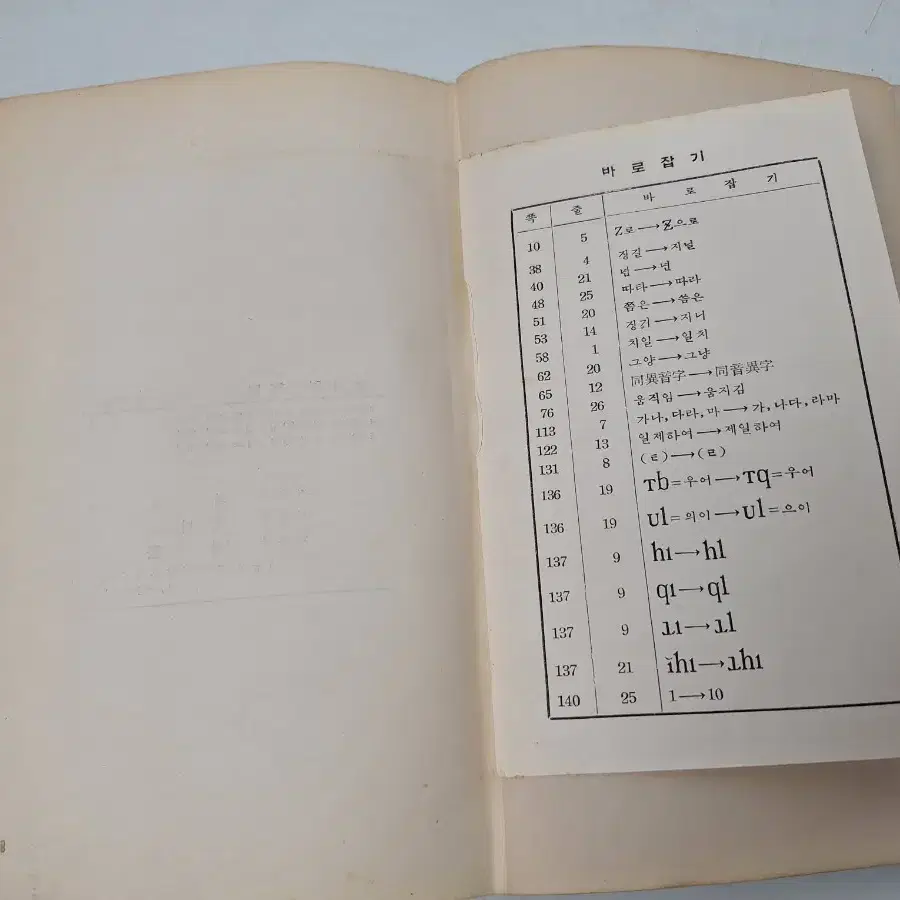 바 로 잡 기
쪽 줄 바 로 잡 기
10 5 Z로→Z으로
38 4 징길→지널
40 21 넙→년
48 25 따타→따라
51 20 쯤은→씀은
53 14 징긺→지니
58 1 치일→일치
62 20 그양→그냥
65 12 同異音字→同音異字
76 26 움직임→움지김
113 7 가나, 다라, 마→가, 나다, 라마
122 13 일제하여→제일하여
131 8 (ㄹ)→(ㄹ)
136 19 тb=우어→тq=우어
136 19 ul=의이→ul=으이
137 9 hı→hl
137 9 qı→ql
137 9 ɹı→ɹl
137 21 ĭhı→ɹhı
140 25 1→10